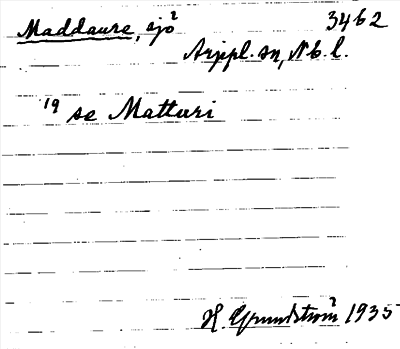 Maddaure, sjö² 3462
Arjpl. sn, Nb. l.
19 se Matturi
H. Grundström 1935